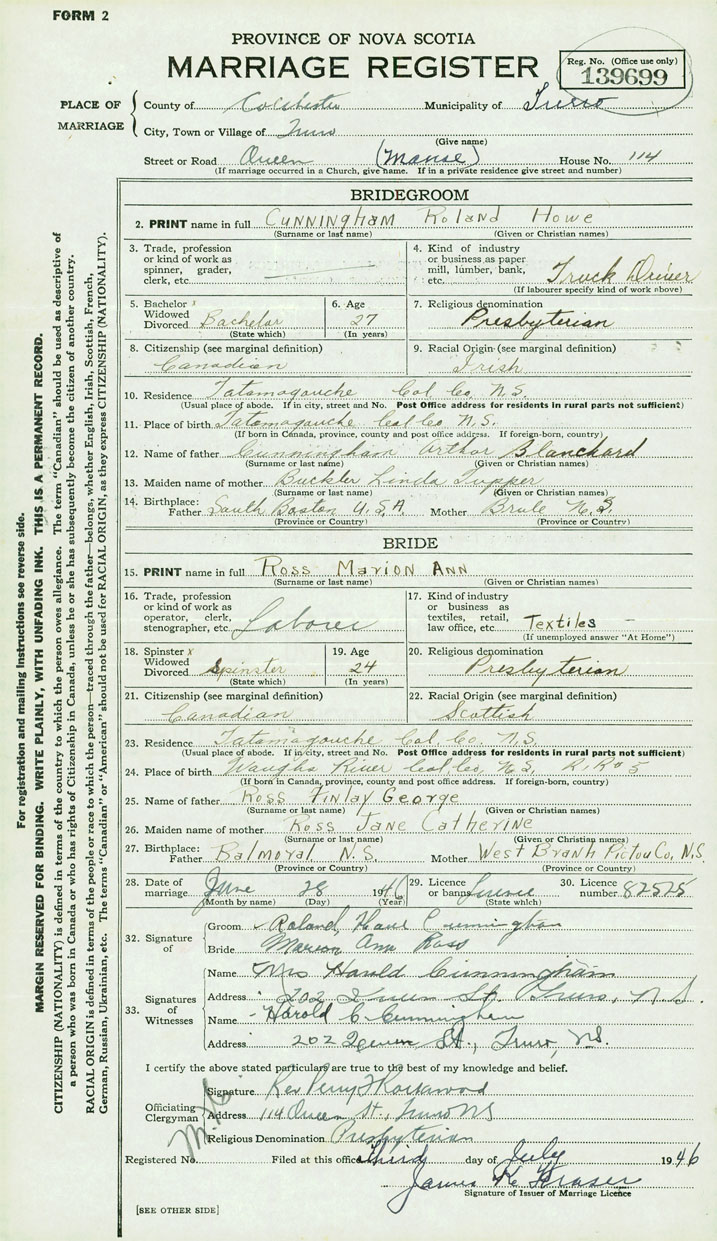 FORM 2
PROVINCE OF NOVA SCOTIA
MARRIAGE REGISTER
Reg. No. (Office use only)
139699
PLACE OF MARRIAGE
County of Colchester Municipality of Truro
City, Town or Village of Truro
(Give name)
Street or Road Queen (Manse) House No. 114
(If marriage occurred in a Church, give name. If in a private residence give street and number)
BRIDEGROOM
2. PRINT name in full Cunningham Roland Howe
(Surname or last name) (Given or Christian names)
3. Trade, profession or kind of work as spinner, grader, clerk, etc.
4. Kind of industry or business as paper mill, lumber, bank, etc. Truck Driver
(If labourer specify kind of work above)
5. Bachelor x Widowed Divorced Bachelor
(State which)
6. Age 27
(In years)
7. Religious denomination
Presbyterian
8. Citizenship (see marginal definition)
Canadian
9. Racial Origin (see marginal definition)
Irish
10. Residence Tatamagouche Col Co. N.S.
(Usual place of abode. If in city, street and No. Post Office address for residents in rural parts not sufficient)
11. Place of birth Tatamagouche Col Co. N.S.
(If born in Canada, province, county and post office address. If foreign-born, country)
12. Name of father Cunningham Arthur Blanchard
(Surname or last name) (Given or Christian names)
13. Maiden name of mother Buckler Linda Tupper
(Surname or last name) (Given or Christian names)
14. Birthplace: Father South Boston U.S.A. Mother Brule N.S.
(Province or Country) (Province or Country)
BRIDE
15. PRINT name in full Ross Marion Ann
(Surname or last name) (Given or Christian names)
16. Trade, profession or kind of work as operator, clerk, stenographer, etc. Laborer
17. Kind of industry or business as textiles, retail, law office, etc. Textiles
(If unemployed answer "At Home")
18. Spinster x Widowed Divorced Spinster
(State which)
19. Age 24
(In years)
20. Religious denomination
Presbyterian
21. Citizenship (see marginal definition)
Canadian
22. Racial Origin (see marginal definition)
Scottish
23. Residence Tatamagouche Col Co. N.S.
(Usual place of abode. If in city, street and No. Post Office address for residents in rural parts not sufficient)
24. Place of birth Waughs River Col Co, N.S. R.R# 5
(If born in Canada, province, county and post office address. If foreign-born, country)
25. Name of father Ross Finlay George
(Surname or last name) (Given or Christian names)
26. Maiden name of mother Ross Jane Catherine
(Surname or last name) (Given or Christian names)
27. Birthplace: Father Balmoral N.S. Mother West Branh Pictou Co, N.S
(Province or Country) (Province or Country)
28. Date of marriage June 28 1946
(Month by name) (Day) (Year)
29. Licence or banns Licence
(State which)
30. Licence number 82525
32. Signature of
Groom Roland Howe Cunningham
Bride Marion Ann Ross
33. Signatures of Witnesses
Name Mrs Harold Cunningham
Address 202 Queen St. Truro, N.S.
Name Harold C. Cunningham
Address 202 Queen St., Truro, N.S.
I certify the above stated particulars are true to the best of my knowledge and belief.
Officiating Clergyman
Signature Rev Perry F Rockwood
Address 114 Queen St, Truro NS
Religious Denomination Presbyterian
Registered No. Filed at this office third day of July 1946
James K. Fraser
Signature of Issuer of Marriage Licence
[SEE OTHER SIDE]
For registration and mailing instructions see reverse side.
MARGIN RESERVED FOR BINDING. WRITE PLAINLY, WITH UNFADING INK. THIS IS A PERMANENT RECORD.
CITIZENSHIP (NATIONALITY) is defined in terms of the country to which the person owes allegiance. The term "Canadian" should be used as descriptive of
a person who was born in Canada or who has rights of Citizenship in Canada, unless he or she has subsequently become the citizen of another country.
RACIAL ORIGIN is defined in terms of the people or race to which the person—traced through the father—belongs, whether English, Irish, Scottish, French,
German, Russian, Ukrainian, etc. The terms "Canadian" or "American" should not be used for RACIAL ORIGIN, as they express CITIZENSHIP (NATIONALITY).